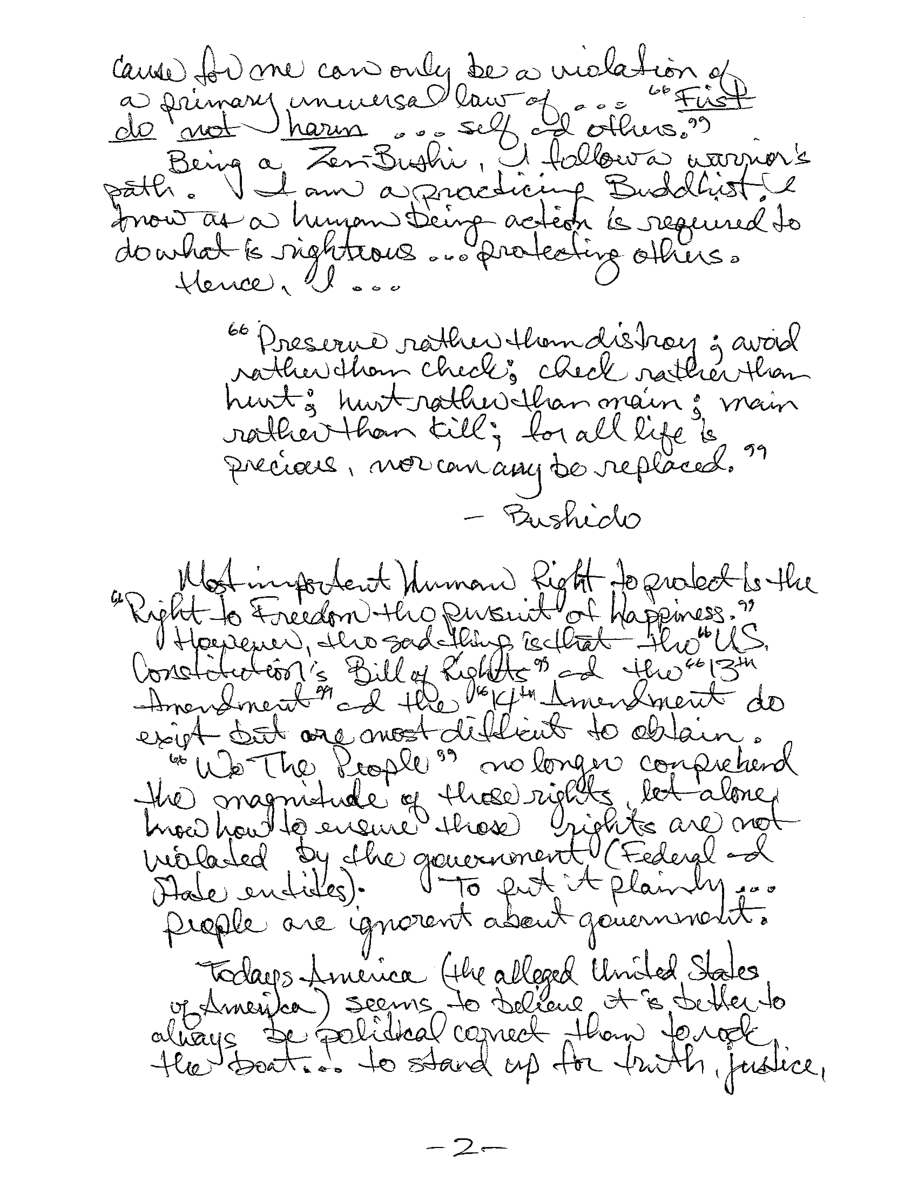 cause for me can only be a violation of
a primary universal law of ... "First
do not harm ... self ad others."
Being a Zen Bushi, I follow a warrior's
path. I am a practicing Buddhist. I
know as a human being action is required to
do what is rightious ... protecting others.
Hence, I ...
"Preserve rather than distroy; avoid
rather than check; check rather than
hurt; hurt rather than maim; maim
rather than kill; for all life is
precious, nor can any be replaced."
- Bushido
Most important Human Right to protect is the
"Right to Freedom tho pursuit of happiness."
However, tho sad thing is that tho "US.
Constitution's Bill of Rights" ad the "13th
Amendment" ad the "14th Amendment do
exist but are most difficult to obtain.
"We The People" no longer comprehend
the magnitude of those rights, let alone,
know how to ensure those rights are not
violated by the government (Federal ad
State entities). To put it plainly...
people are ignorent about government.
Todays America (the alleged United States
of America) seems to believe it is better to
always be political correct than to rock
the boat... to stand up for truth, justice,
-2-